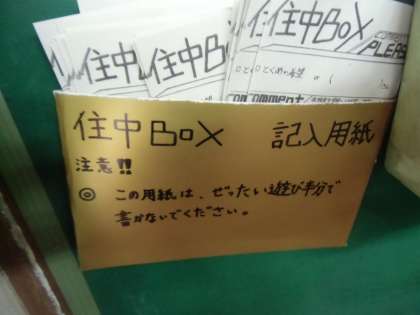 住中BOX
住中BOX
住中BOX
PLEAS
comment
住中BOX 記入用紙
注意!!
◎ この用紙は、ぜったい遊び半分で
書かないでください。